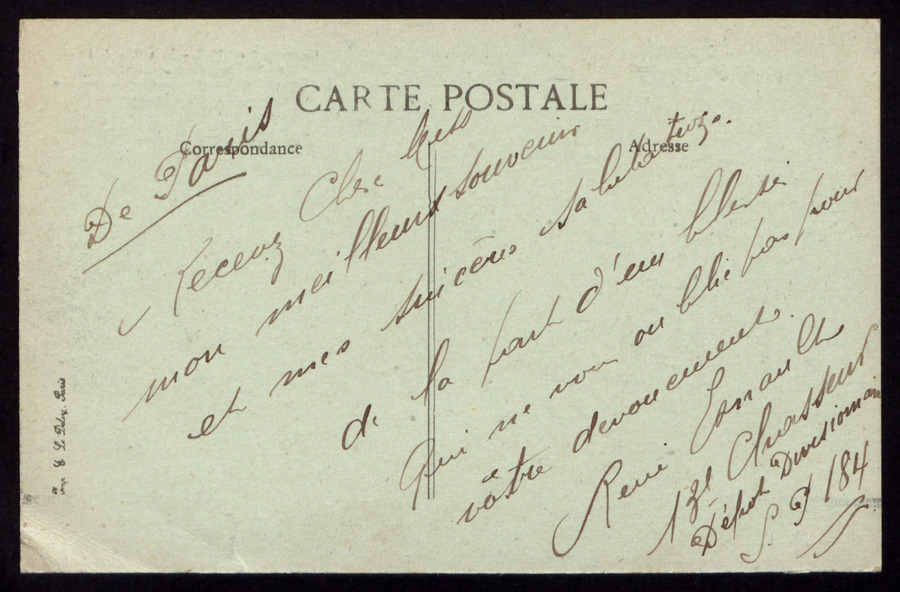 CARTE POSTALE
Correspondance
Adresse
De Paris
Recevez Cher Miss
mon meilleurs souvenir
et mes sincères salutations.
de la part d'un blessé
qui ne vous oublie pas pour
vôtre devouements.
René
13e Chasseurs
Dépot Divisionnaire
S. P 184
Imp. E. Le Deley, Paris